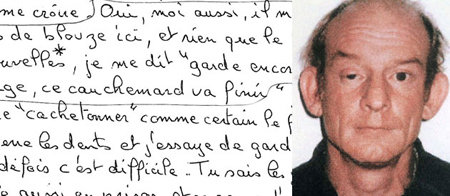 me crône Oui, moi aussi, il m
s de blouze ici, et rien que le
uvelles*, je me dit "garde encor
ge, ce cauchemard va finir"
e "cachetonner" comme certain le f
erre les dents et j'essaye de gard
défois c'est difficile.. Tu sais les